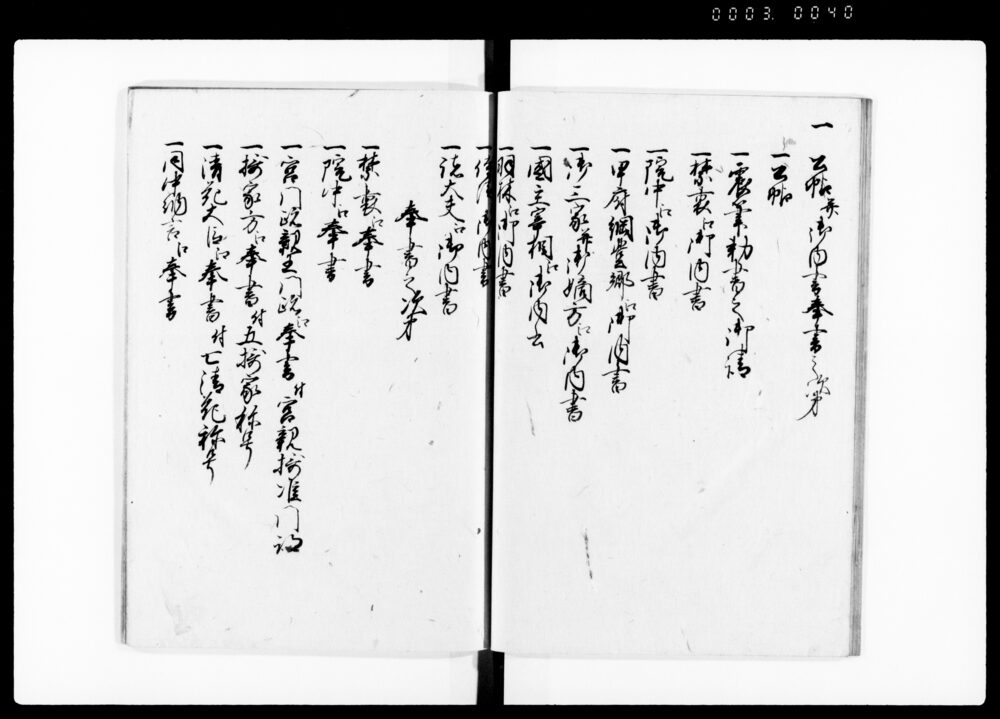 0003. 0040
一 公帖并御内書奉書之次第
一公帖
一宸筆勅書之御請
一禁裏江御内書
一院中江御内書
一甲府綱豊卿江御内書
一御三家并御嫡方江御内書
一國主宰相江御内書
一羽林江御内書
一侍従江御内書
一諸大夫江御内書
奉書之次第
一禁裏江奉書
一院中江奉書
一宮門跡親王門跡江奉書付宮親摂准門跡
一摂家方江奉書付五摂家称号
一清花大臣江奉書付七清花称号
一同中納言江奉書